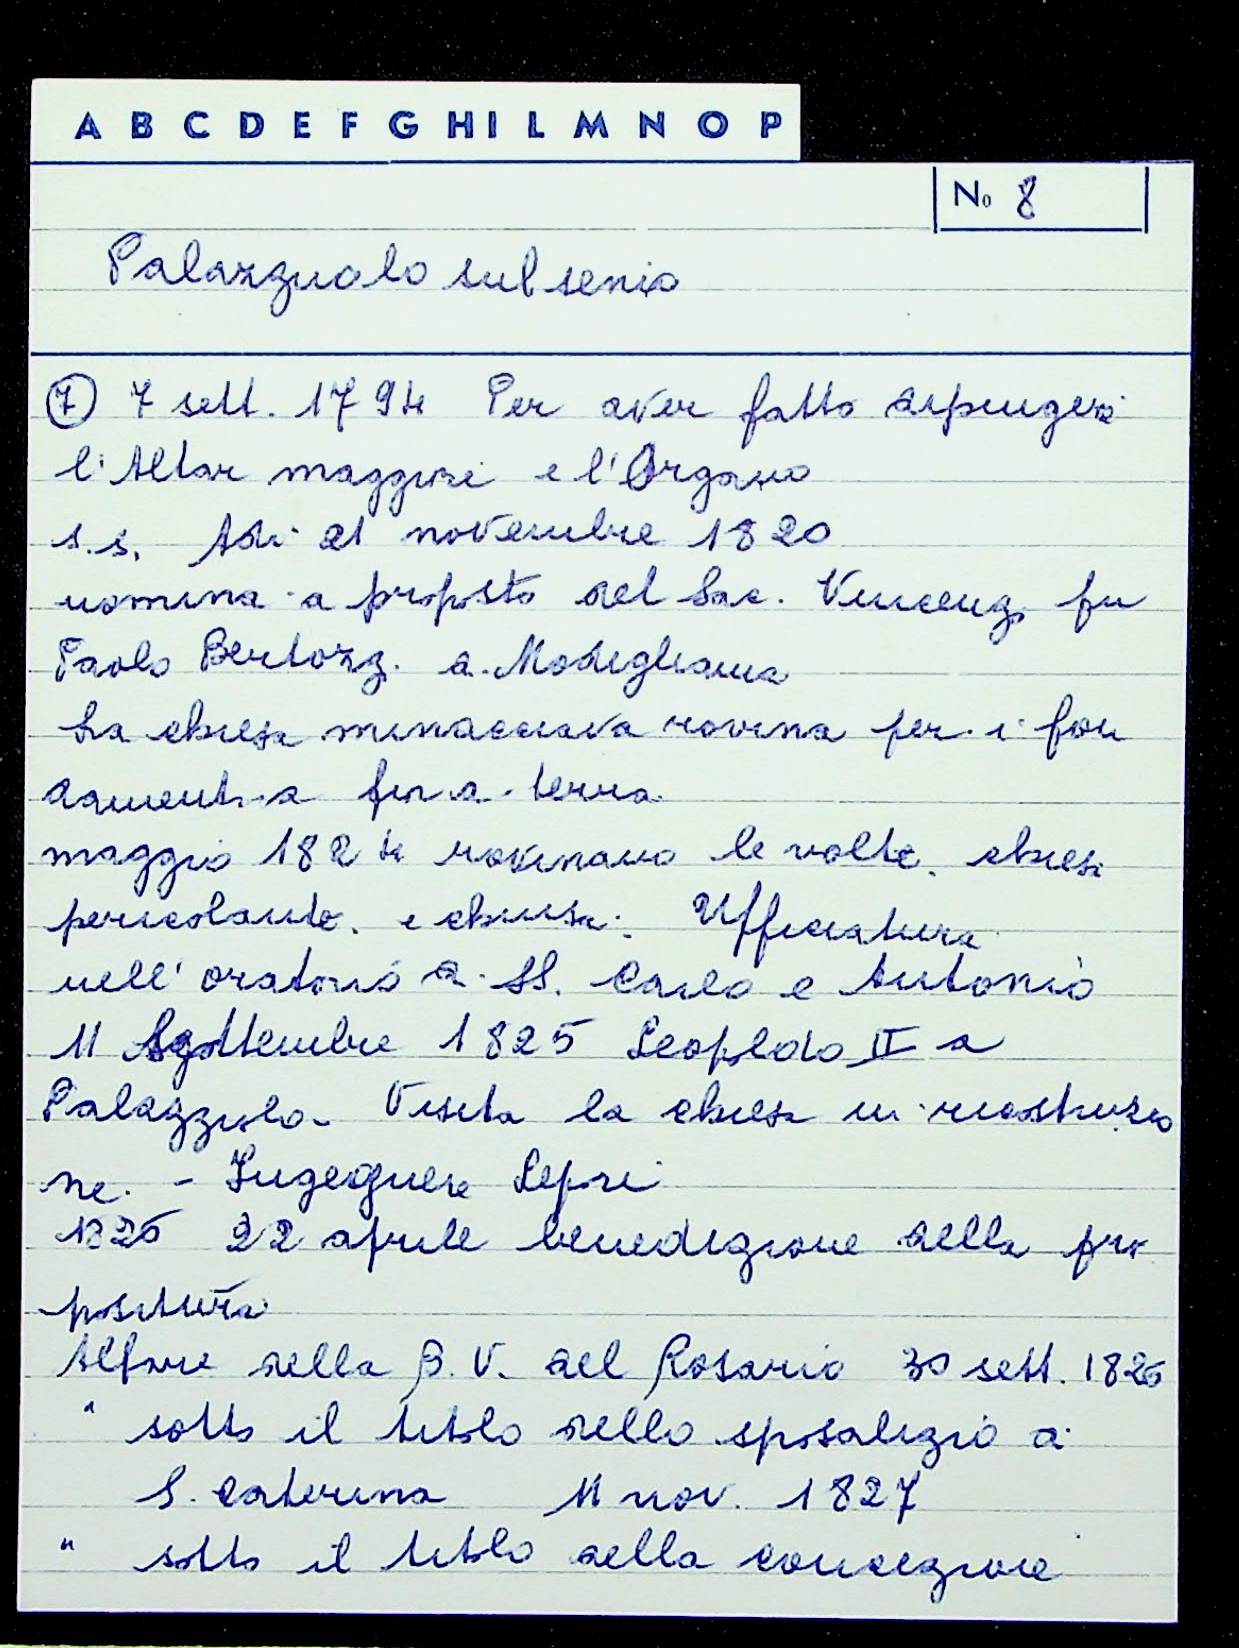 A B C D E F G H I L M N O P
No 8
Palazzuolo sul senio
7 7 sett. 1794 Per aver fatto dipingere
l'Altar maggiore e l'Organo
s.s. Adi 21 novembre 1820
nomina a proposto del Sac. Vincenzo fu
Paolo Bertozzi di Modigliana
La chiesa minacciava rovina per i fon
damenti a fior di terra
maggio 1824 rovinano le volte. chiesa
pericolante. e chiusa. Ufficiatura
nell'oratorio di SS. Carlo e Antonio
11 Settembre 1825 Leopoldo II a
Palazzuolo. Visita la chiesa in ricostruzio
ne. - Ingegnere Lepri
1826 22 aprile benedizione della pro
positura
Altare della B. V. del Rosario 30 sett. 1826
" sotto il titolo dello sposalizio di
S. Caterina 11 nov. 1827
" sotto il titolo della concezione